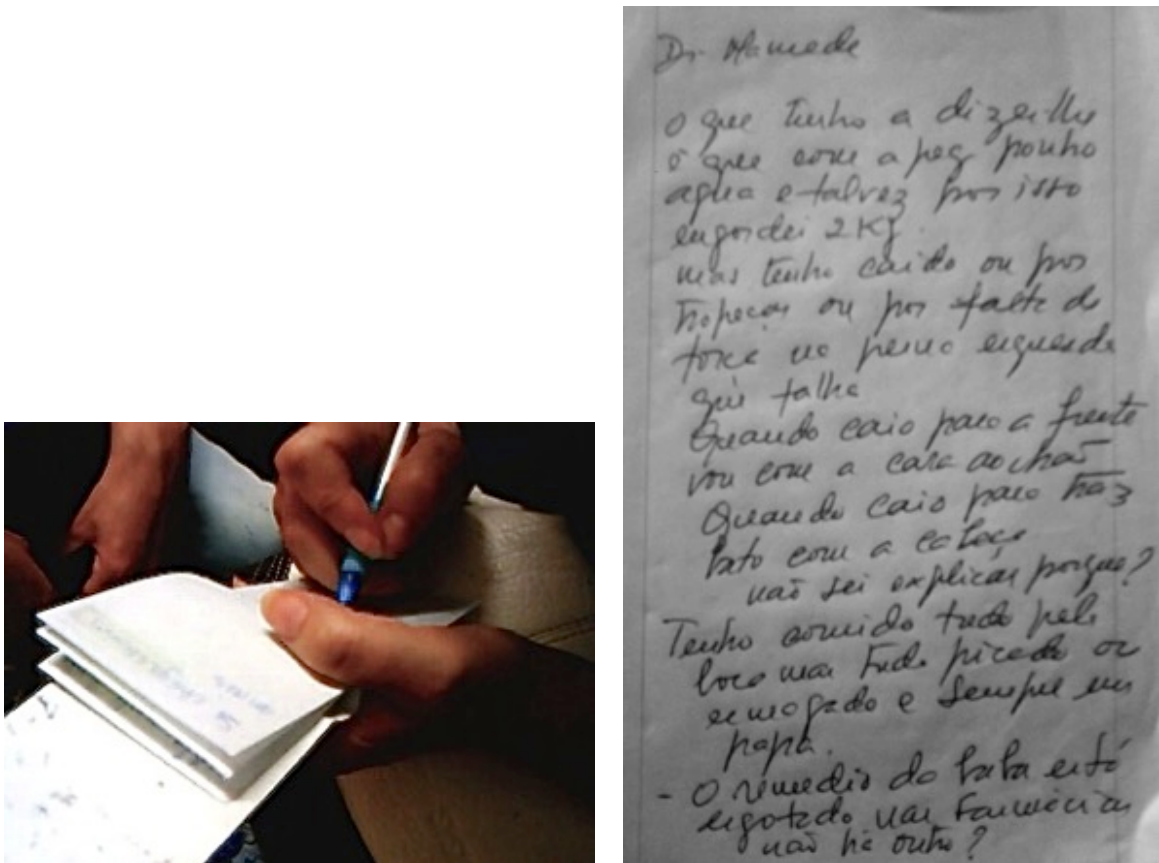 Dr. Mamede
O que tenho a dizer-lhe
é que com a peg ponho
agua e talvez por isso
engordei 2 Kg.
mas tenho caido ou por
tropeçar ou por falta de
força na perna esquerda
que falha
Quando caio para a frente
vou com a cara ao chão
Quando caio para traz
bato com a cabeça
não sei explicar porque?
Tenho comido tudo pela
boca mas tudo picado ou
esmagado e sempre em
papa.
- O remedio da baba está
esgotado nas farmácias
não há outro?